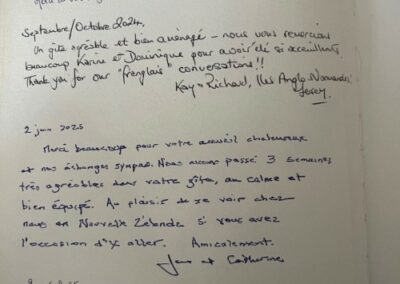 Septembre/Octobre 2024.
Un gîte agréable et bien aménagé – nous vous remercions
beaucoup Karine et Dominique pour avoir été si accueillants.
Thank you for our "frenglais" conversations!!
Kay + Richard, Iles Anglo Normandes
Jersey.
2 juin 2025
Merci beaucoup pour votre accueil chaleureux
et nos échanges sympas. Nous avons passé 3 semaines
très agréables dans votre gîte, au calme et
bien équipé. Au plaisir de se voir chez
nous en Nouvelle Zélande si vous avez
l'occasion d'y aller. Amicalement.
et Catherine